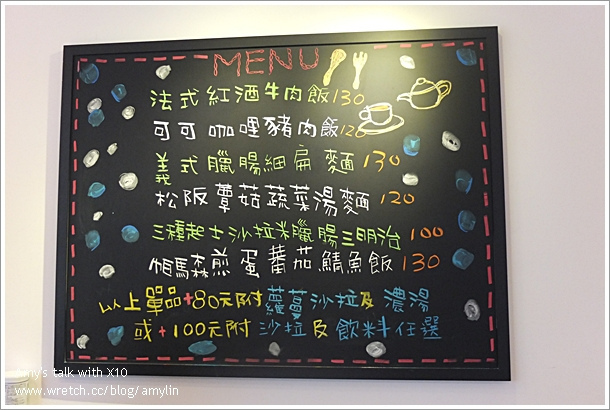 MENU
法式紅酒牛肉飯130
可可咖哩豬肉飯120
義式臘腸細扁麵130
松阪蕈菇蔬菜湯麵120
三種起士沙拉米臘腸三明治100
帕馬森煎蛋蕃茄鯖魚飯130
以上單品+80元附蘿蔓沙拉及濃湯
或+100元附沙拉及飲料任選
Amy's talk with X10
www.wretch.cc/blog/amylin